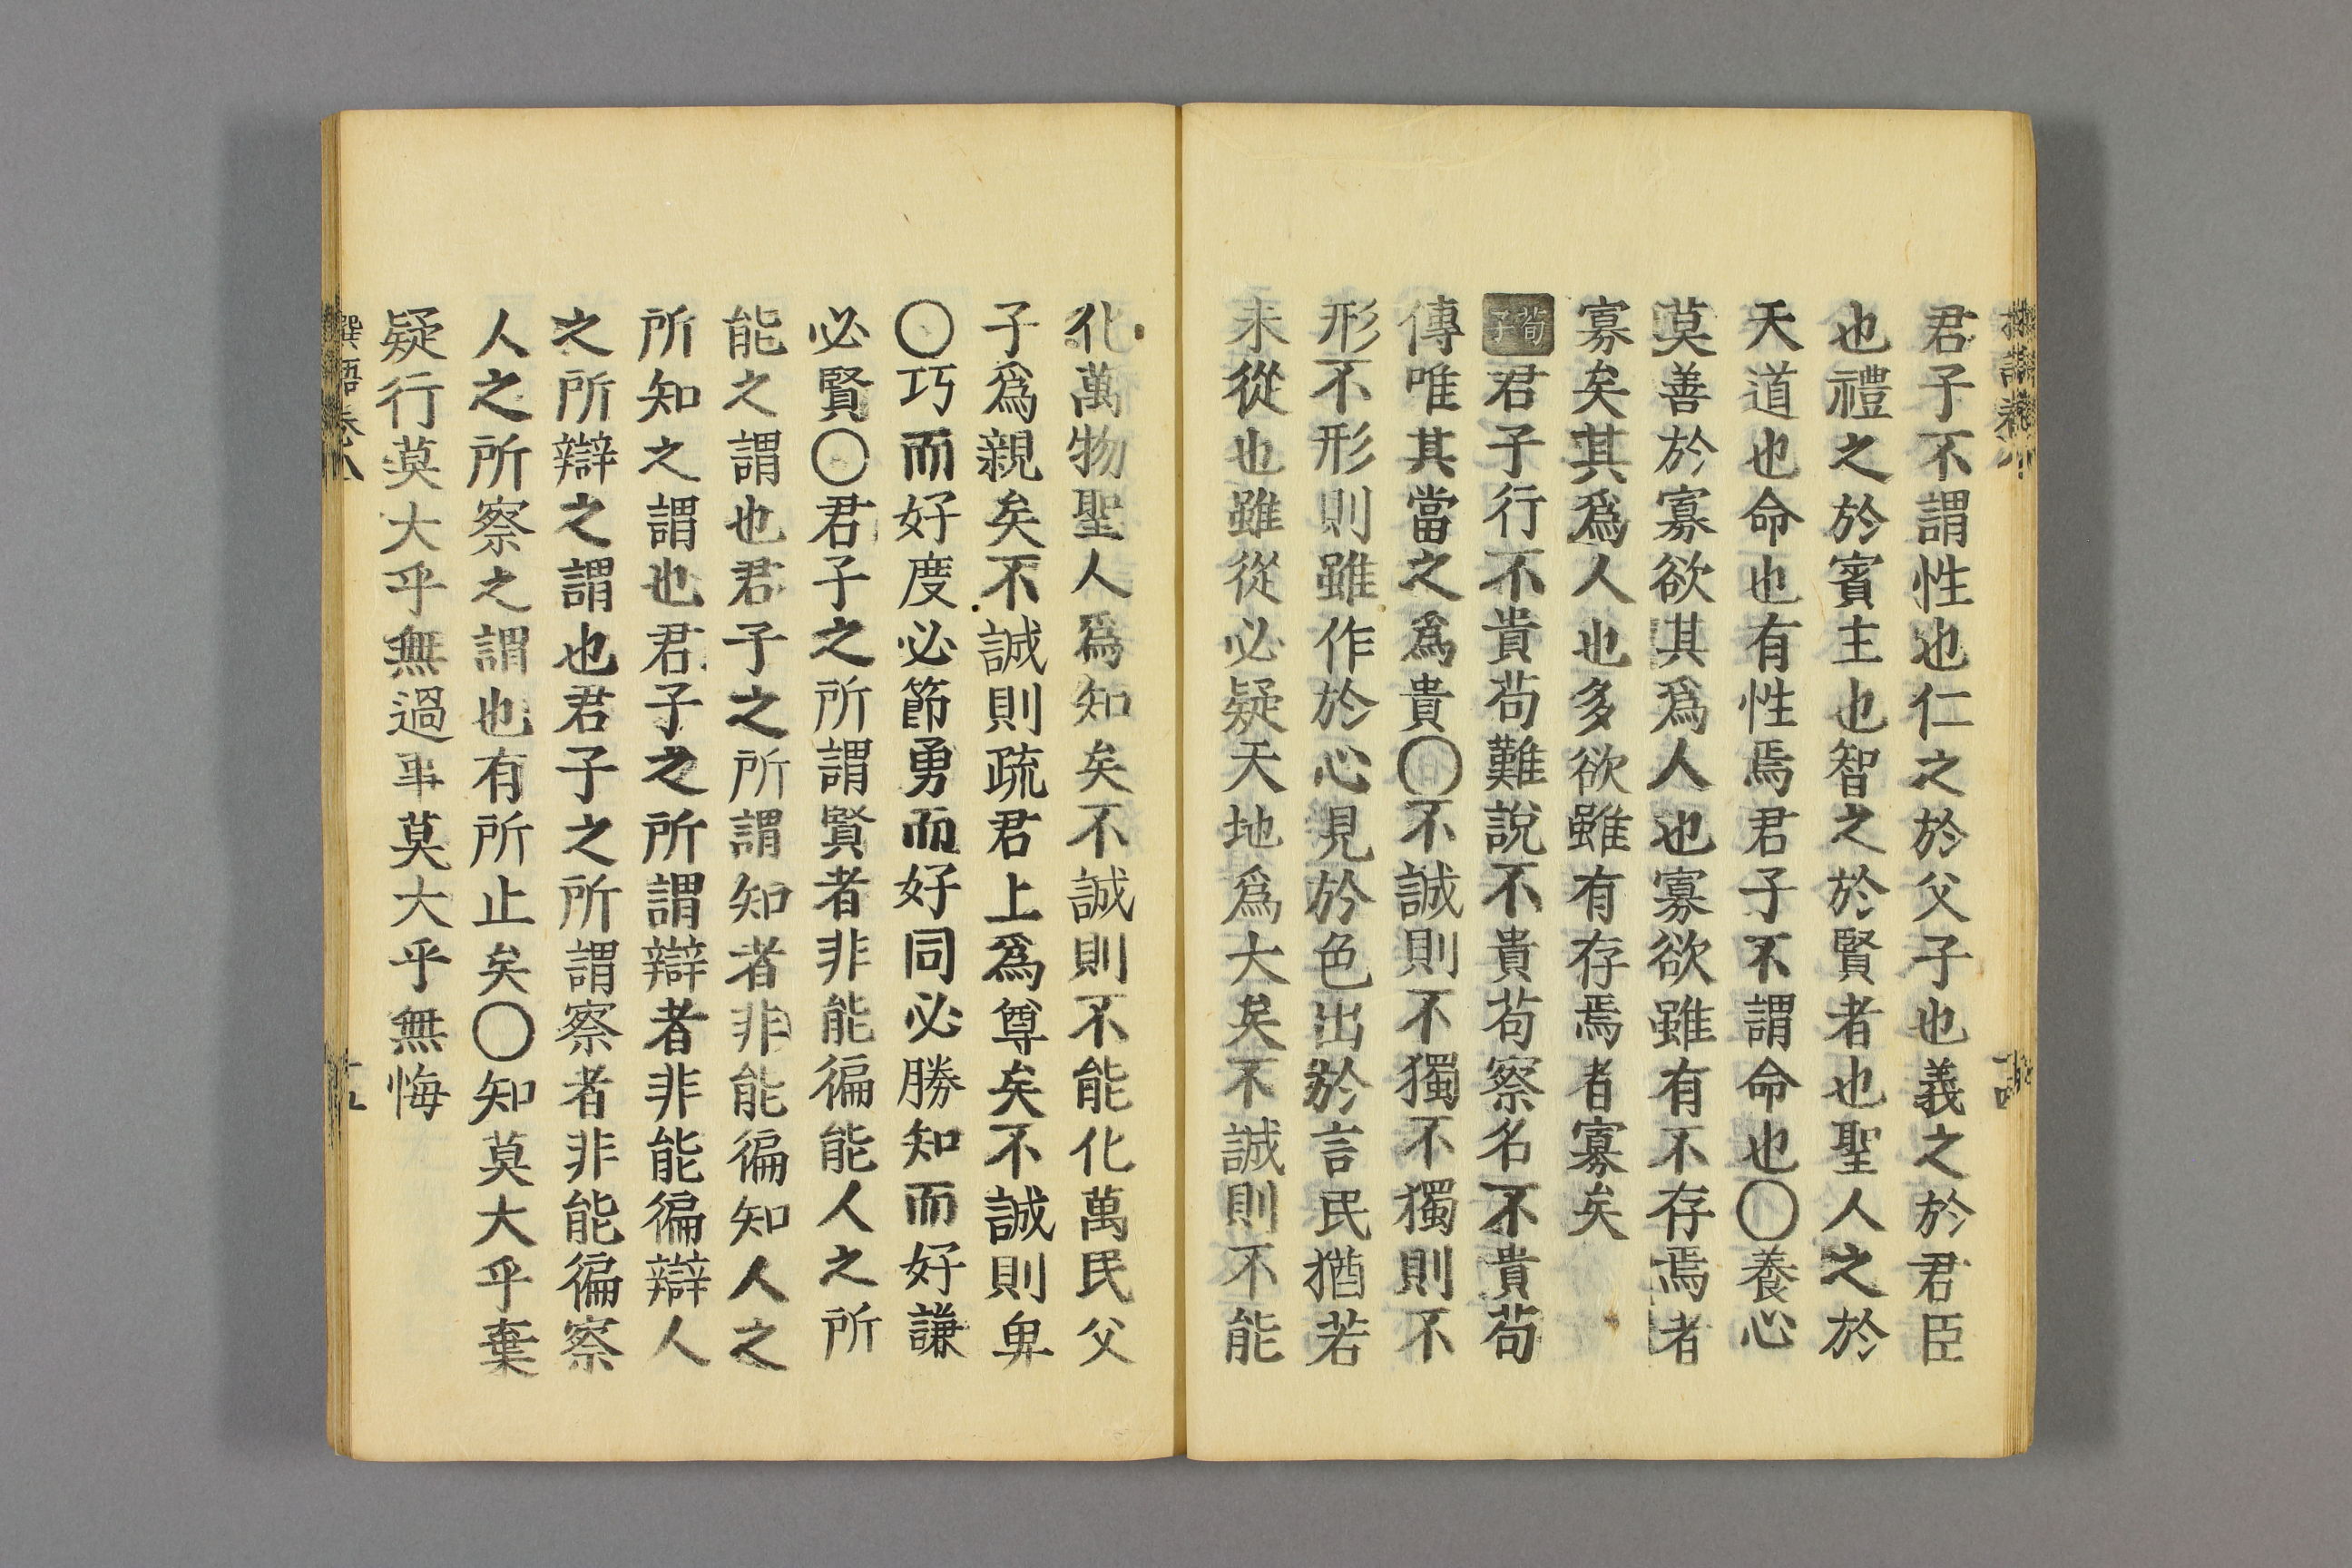 君子不謂性也仁之於父子也義之於君臣
也禮之於賓主也智之於賢者也聖人之於
天道也命也有性焉君子不謂命也〇養心
莫善於寡欲其爲人也寡欲雖有不存焉者
寡矣其爲人也多欲雖有存焉者寡矣
荀子君子行不貴苟難說不貴苟察名不貴苟
傳唯其當之爲貴〇不誠則不獨不獨則不
形不形則雖作於心見於色出於言民猶若
未從也雖從必疑天地爲大矣不誠則不能
化萬物聖人爲知矣不誠則不能化萬民父
子爲親矣不誠則疏君上爲尊矣不誠則卑
〇巧而好度必節勇而好同必勝知而好謙
必賢〇君子之所謂賢者非能徧能人之所
能之謂也君子之所謂知者非能徧知人之
所知之謂也君子之所謂辯者非能徧辯人
之所辯之謂也君子之所謂察者非能徧察
人之所察之謂也有所止矣〇知莫大乎棄
疑行莫大乎無過事莫大乎無悔